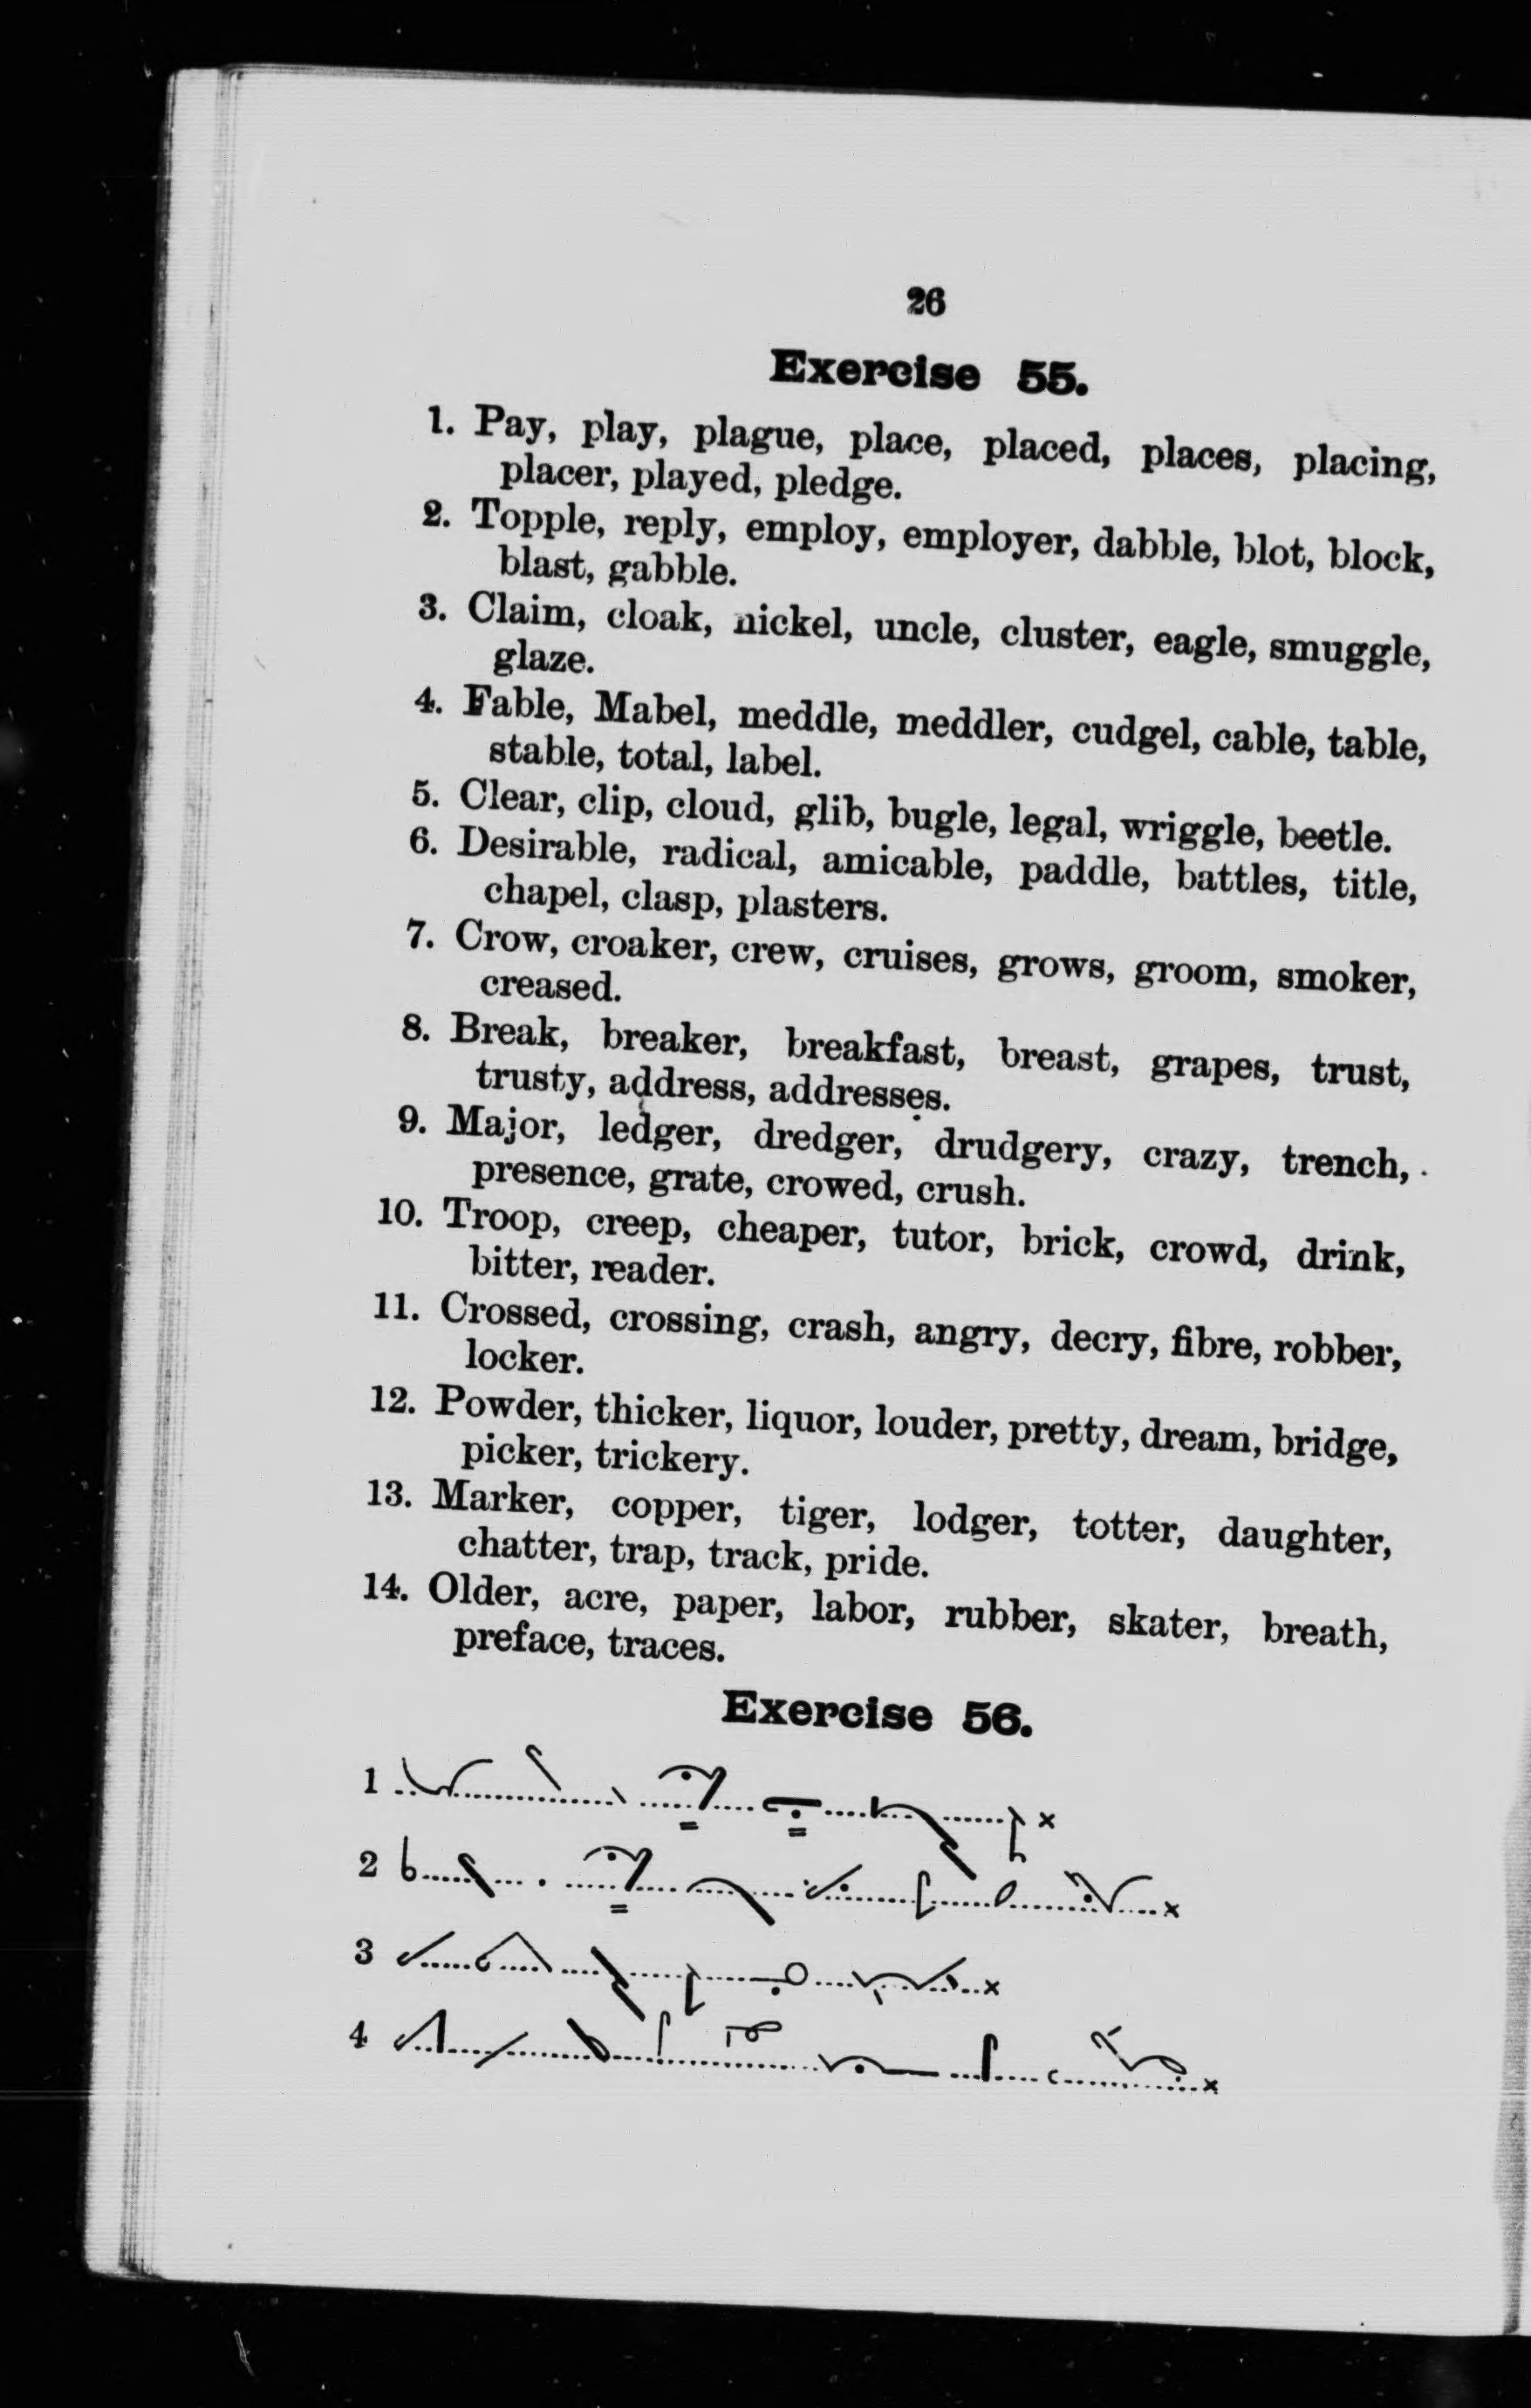 26
Exercise 55.
1. Pay, play, plague, place, placed, places, placing,
placer, played, pledge.
2. Topple, reply, employ, employer, dabble, blot, block,
blast, gabble.
3. Claim, cloak, nickel, uncle, cluster, eagle, smuggle,
glaze.
4. Fable, Mabel, meddle, meddler, cudgel, cable, table,
stable, total, label.
5. Clear, clip, cloud, glib, bugle, legal, wriggle, beetle.
6. Desirable, radical, amicable, paddle, battles, title,
chapel, clasp, plasters.
7. Crow, croaker, crew, cruises, grows, groom, smoker,
creased.
8. Break, breaker, breakfast, breast, grapes, trust,
trusty, address, addresses.
9. Major, ledger, dredger, drudgery, crazy, trench,
presence, grate, crowed, crush.
10. Troop, creep, cheaper, tutor, brick, crowd, drink,
bitter, reader.
11. Crossed, crossing, crash, angry, decry, fibre, robber,
locker.
12. Powder, thicker, liquor, louder, pretty, dream, bridge,
picker, trickery.
13. Marker, copper, tiger, lodger, totter, daughter,
chatter, trap, track, pride.
14. Older, acre, paper, labor, rubber, skater, breath,
preface, traces.
Exercise 56.
1
2
3
4